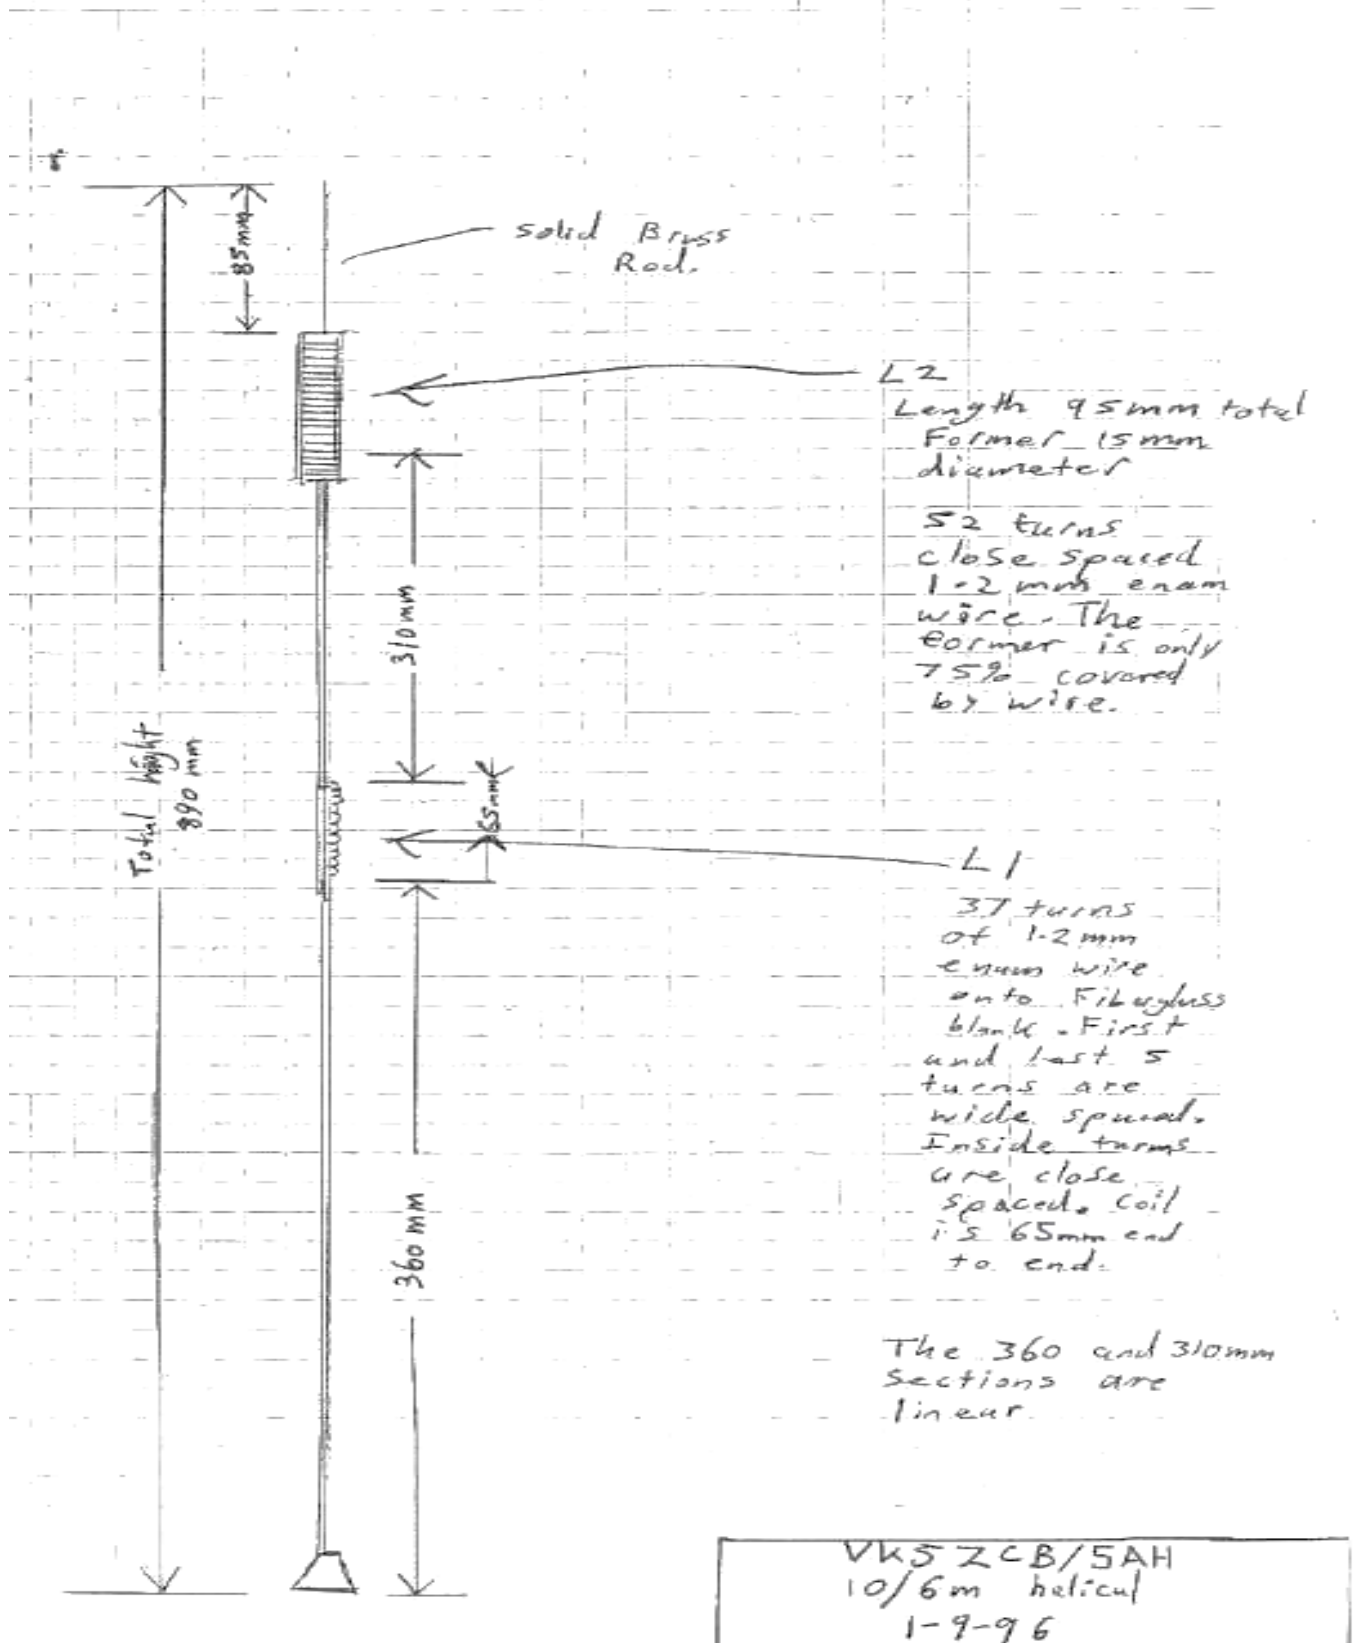 85mm
Solid Bruss
Rod.
L2
Length 95mm total
Former 15mm
diameter
52 turns
close spaced
1.2 mm enam
wire. The
Eormer is only
75% covared
by wire.
310mm
Total hight
890 mm
65mm
L1
37 turns
of 1.2 mm
enam wire
onto Fibugluss
blank. First
and last 5
turns are
wide spaced.
Inside turns
are close
spaced. Coil
is 65mm end
to end.
360 mm
The 360 and 310mm
Sections are
linear
VK5ZCB/5AH
10/6m helical
1-9-96